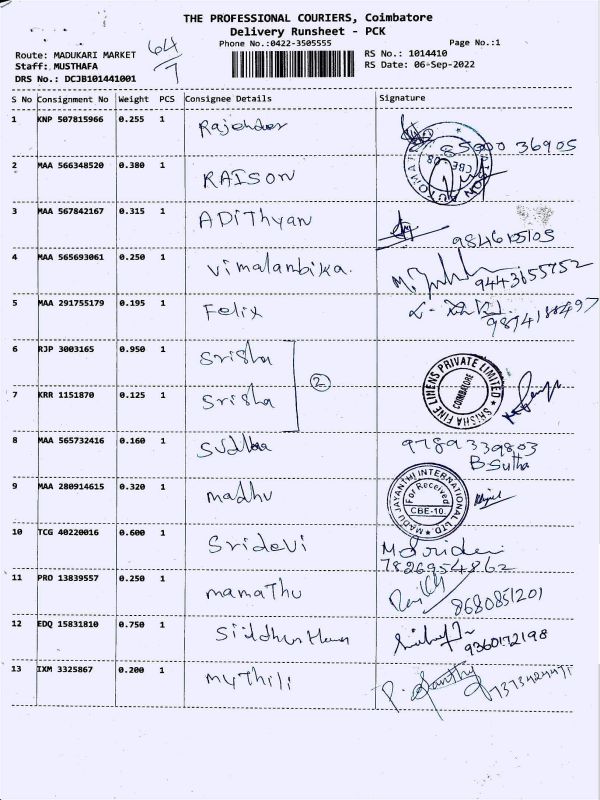 THE PROFESSIONAL COURIERS, Coimbatore
Delivery Runsheet - PCK
Phone No.:0422-3505555
Page No.:1
Route: MADUKARI MARKET
Staff: MUSTHAFA
DRS No.: DCJB101441001
64/7
RS No.: 1014410
RS Date: 06-Sep-2022
S No Consignment No Weight PCS Consignee Details Signature
1 KNP 507815966 0.255 1 Rajender 85000 36905
2 MAA 566348520 0.380 1 RAISON
CBE-08
3 MAA 567842167 0.315 1 ADIThyan
4 MAA 565693061 0.250 1 Vimalambika. 9443655752
5 MAA 291755179 0.195 1 Felix
6 RJP 3003165 0.950 1 Srisha
2
7 KRR 1151870 0.125 1 Srisha
SRISHA FINE LINENS PRIVATE LIMITED
COIMBATORE
8 MAA 565732416 0.160 1 Sudha 9789339803
B Sutha
9 MAA 280914615 0.320 1 madhu
MADU JAYANTHI INTERNATIONAL LTD.
For Received
CBE-10.
10 TCG 40220016 0.600 1 Sridevi M Sridevi
7826954862
11 PRO 13839557 0.250 1 mamathu
8680851201
12 EDQ 15831810 0.750 1
9360172198
13 IXM 3325867 0.200 1 mythili P. Santhy